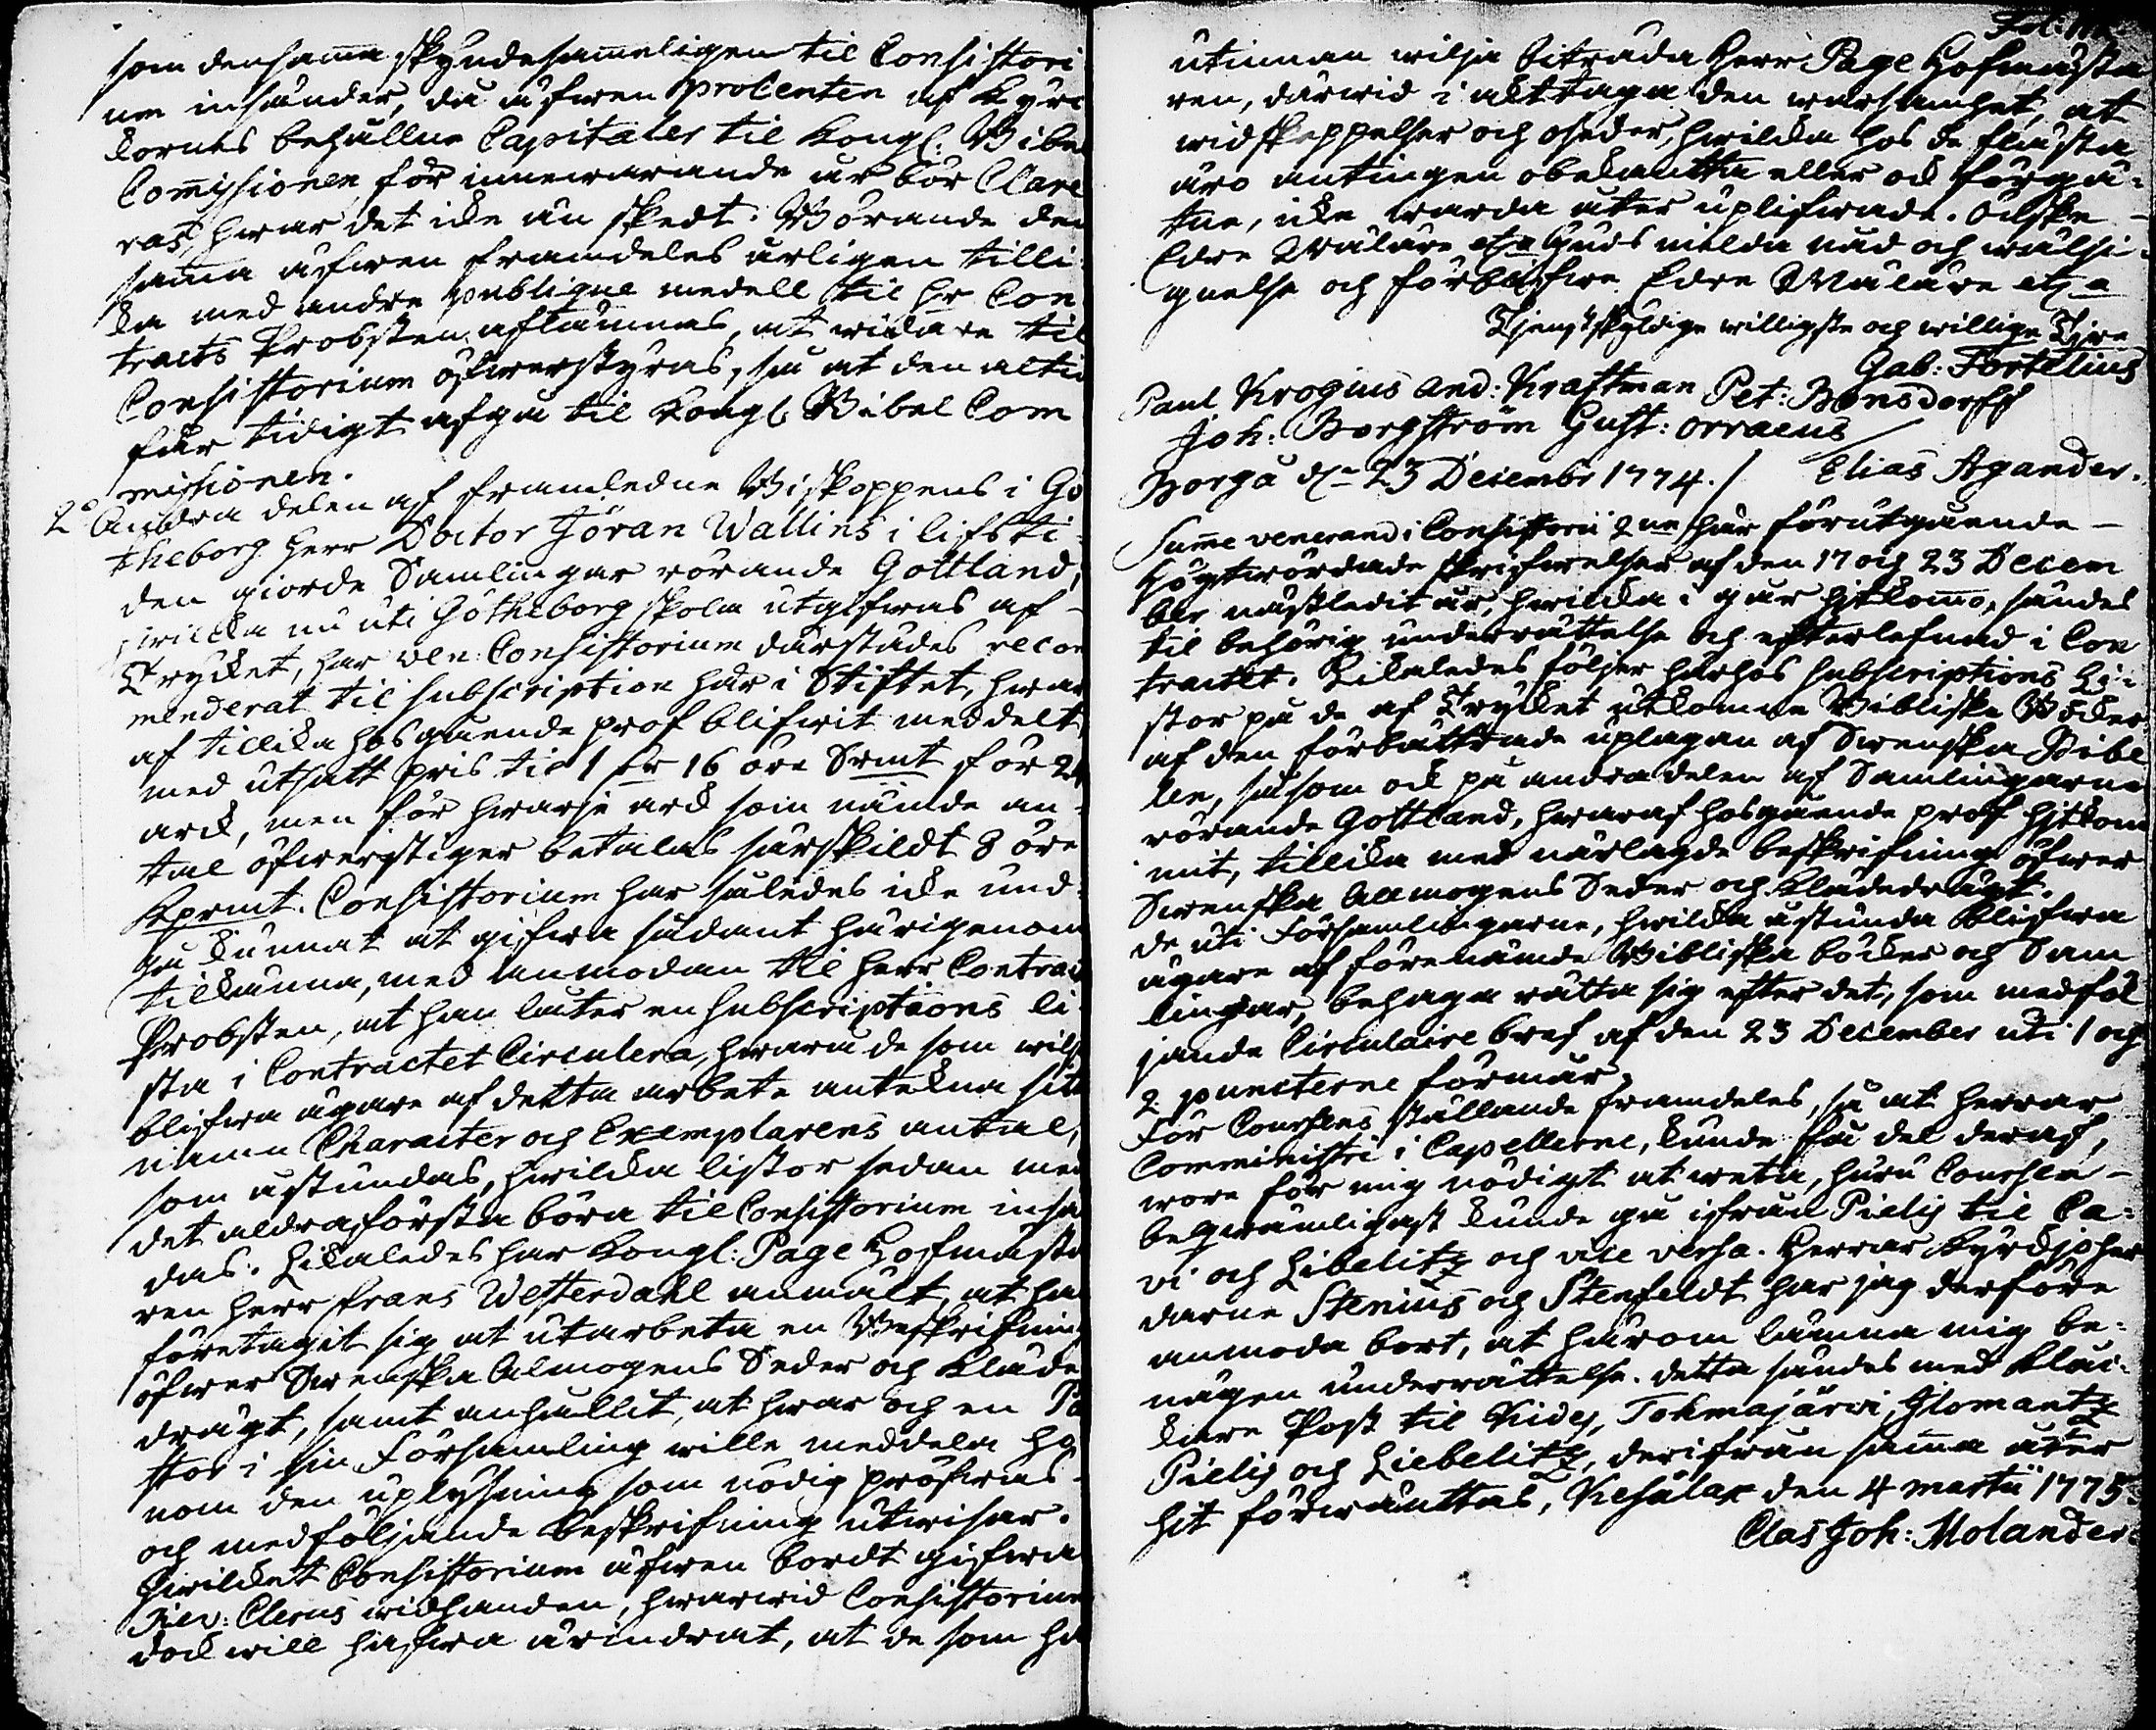 som densama skyndesameligen til Consistori
um insänder, då äfwen procenten af Kyrc
kornes behållne Capitaler til Kongl: Bibel
Comissionen för innewarande år bör Clare
ras, hwar det icke än skedt. Börande den
sama äfwen framdeles årligen tilli
ka med andre publique medell til hr Con
tracts Probsten aflämnas, at widare til
Consistorium öfwerstyras, så at den altid
får tidigt afgå til Kongl. Bibel Com
missionen.
2o Andra delen af framledne Biskoppens i Gö
theborg Herr Doctor Jöran Wallins i lifsti
den giorde Samlingar rörande Gottland,
hwilcka nu uti Götheborg skola utgifwas af
Trycket, har ven: Consistorium därstädes recom
menderat til subscription här i Stiftet, hwar
af tillika hosgående prof blifwit meddelt
med utsatt pris til 1 dr 16 öre Srmt för 24
arck, men för hwarje arck som nämde an
tal öfwerstiger betalas särskildt 8 öre
Kprmt. Consistorium har således icke und
gå kunnat at gifwa sådant härigenom
tillkänna, med anmodan til Herr Contract
Probsten, at han låter en subscriptions li
sta i Contractet Circulera, hwarå de som wilja
blifwa ägare af detta arbete antekna sitt
namn Character och Exemplarens antal,
som åstundas, hwilcka listor sedan med
det aldraförsta böra til Consistorium insän
das. Likaledes har Kongl: Page Hofmästa
ren Herr Frans Westerdahl anmält, at han
företagit sig at utarbeta en Beskrifning
öfwer Swenska Almogens Seder och Kläde
drägt, samt anhållit, at hwar och en Pa
stor i sin Församling wille meddela ho
nom den uplysning som nödig pröfwas
och medföljande beskrifning utwisar.
Hwilcket Consistorium äfwen bordt gifwa
Rev: Clerus widhanden, hwarwid Consistorium
dock will hafwa ärindrat, at de som hä
utinnan wilja biträda Herr Page Hofmästa
ren, därwid i akttaga den warsamhet, at
widskeppelser och oseder, hwilcka hos de flästa
äro antingen obekantta eller ock förgä
tne, icke warda åter uplifwade. Önske
Edre Wäläre etc Guds milda nåd och wälsi
gnelse och förblifwe Edre Wälärе etc
Tjenstskyldige willigste och willige Tjenare
Gab: Fortelius
Paul Krogius And: Kraftman Pet: Bonsdorff
Joh: Borgström Gust: Orraeus
Borgå dn 23 Decembr 1774. / Elias Agander.
Sume venerandi Consistorii 2ne här förutgående
Högtwördade skrifwelser af den 17 och 23 Decem
ber nästledit år, hwilcka i går hitkomo, sändes
til behörig underrättelse och efterlefnad i Con
tractet. Likaledes följer härhos subscriptions Li
stor på de af Trycket utkomne Bibliske Böcker
af den förbättrade uplagan af Swenska Bibe
len, såsom ock på andra delen af Samlingarne
rörande Gottland, hwaraf hosgående prof hitkom
mit, tillika med närlagde beskrifning öfwer
Swenska Allmogens Seder och Klädedrägt.
De uti Församlingarne, hwilcka åstunda blifwa
ägare af förenämde Bibliska böcker och Sam
lingar, behaga rätta sig efter det, som medföl
jande Circulaire bref af den 23 December uti 1 och
2 puncterne förmår.
För Coursens ställande framdeles, så at Herrar
Comministri i Capellerne, kunde få del deraf,
wore för mig nödigt at weta, huru Coursen
beqwämligast kunde gå ifrån Pielis til Ca
vi och Libelitz och vice versa. Herrar Kyrckjoher
darne Stenius och Stenfeldt har jag derföre
anmoda bort, at härom lämna mig be
nägen underrättelse. Detta sändes med Kloc
kare Post til Kides, Tohmajärwi, Ilomantz
Pielis och Liebelitz, derifrån sama åter
hit förwänttas, Kesälax den 4 martii 1775.
Clas Joh: Molander.